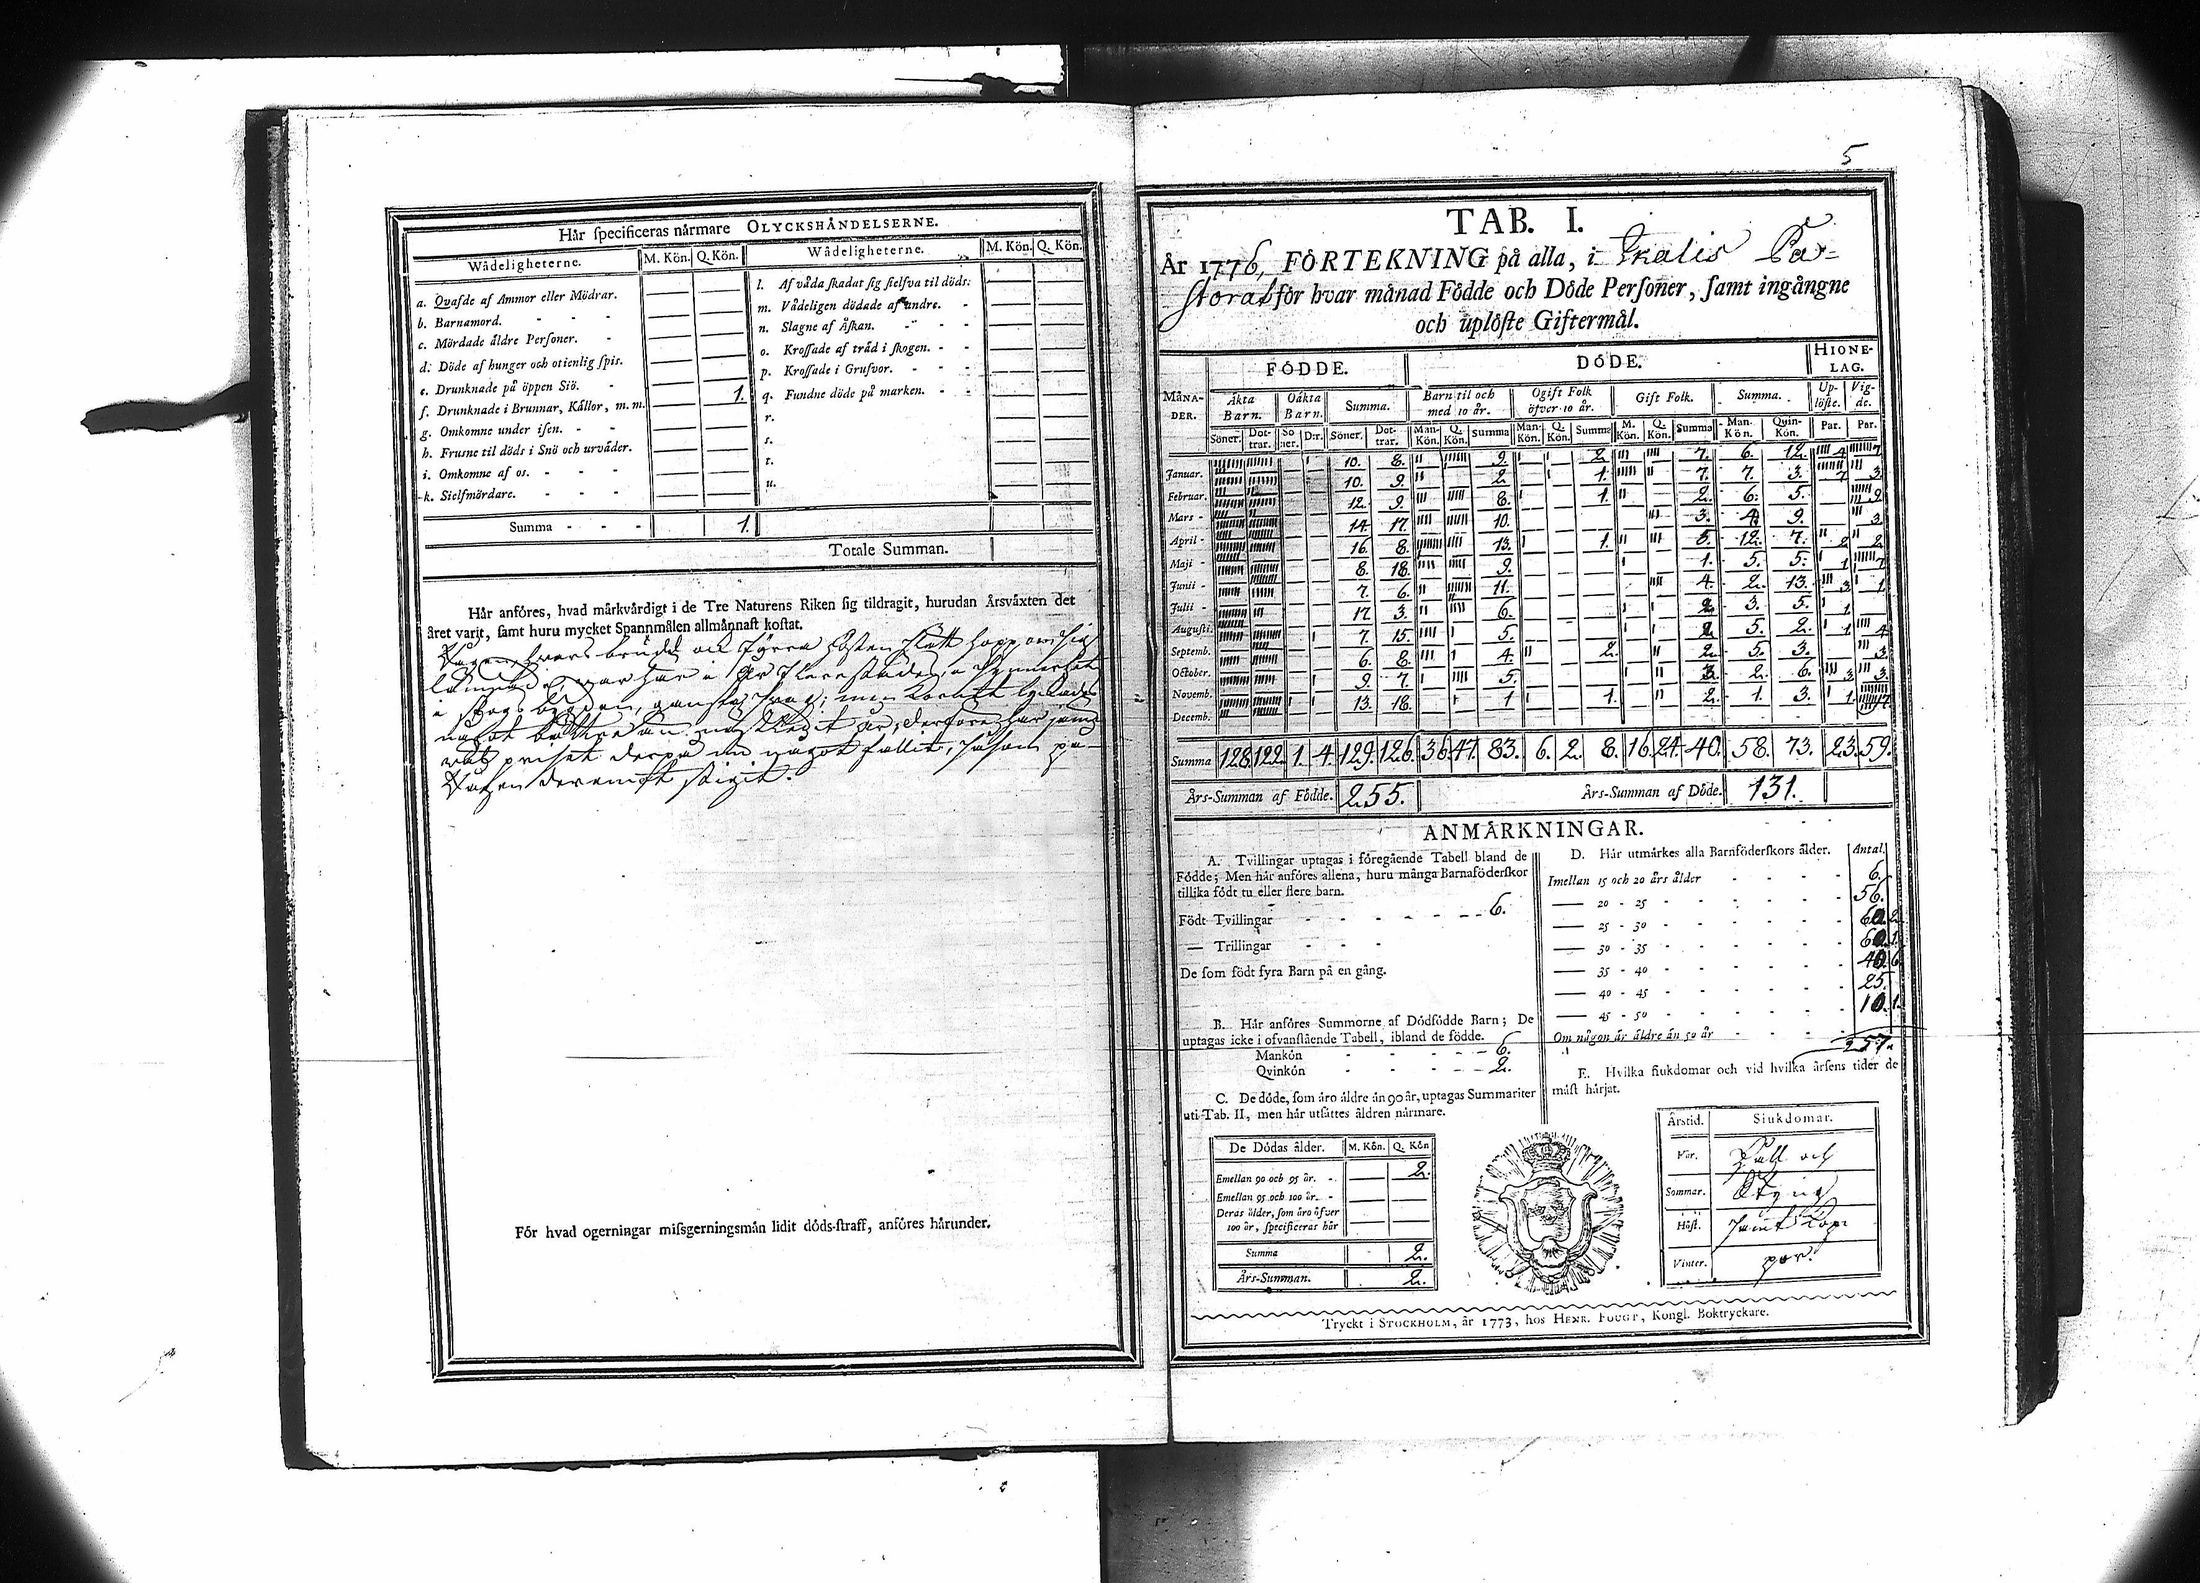 Hår ſpecificeras nårmare OLYCKSHÅNDELSERNE.
Wådeligheterne. M. Kön. Q. Kön. Wådeligheterne. M. Kön. Q. Kön.
a. Qvafde af Ammor eller Mödrar. — — l. Af våda ſkadat ſig ſielfva til döds: — —
b. Barnamord. - - - — — m. Vådeligen dödade af andre. - — —
c. Mördade åldre Perſoner. - — — n. Slagne af Åſkan. - - - — —
d. Döde af hunger och otienlig ſpis. — — o. Kroſſade af tråd i ſkogen. - - — —
e. Drunknade på öppen Siö. - — 1. p. Kroſſade i Grufvor. - - - — —
f. Drunknade i Brunnar, Kållor, m. m. — — q. Fundne döde på marken. - - — —
g. Omkomne under iſen. - - — — r. — —
h. Fruſne til döds i Snö och urvåder. — — s. — —
i. Omkomne af os. - - - — — t. — —
k. Sielfmördare. - - - — — u. — —
Summa - - - 1.
Totale Summan.
Hår anföres, hvad mårkvårdigt i de Tre Naturens Riken ſig tildragit, hurudan Årsvåxten det
året varit, ſamt huru mycket Spannmålen allmånnaſt koſtat.
Rågen, hvars brudd
i skogsbygden, ganska svag; men Kornet lyckades
något båttre än nästledit år; derföre har jåm-
väl priset derpå nu något fallit, såsom på
Rågen deremot stigit.
För hvad ogerningar miſsgerningsmån lidit döds-ſtraff, anföres hårunder.
5
TAB. I.
År 1776, FÖRTEKNING på alla, i Ikalis Pa-
storat för hvar månad Födde och Döde Perſoner, ſamt ingångne
och uplöſte Giftermål.
FÖDDE. DÖDE. HIONE-
LAG.
MÅNA-
DER. Äkta
Barn. Oåkta
Barn. Summa. Barn til och
med 10 år. Ogift Folk
öfver 10 år. Gift Folk. Summa. Up-
löſte. Vig-
de.
Söner. Dot-
trar. Sö
ner. D:r. Söner. Dot-
trar. Man-
Kön. Q.
Kön. Summa Man-
Kön. Q.
Kön. Summa M.
Kön. Q.
Kön. Summa Man-
Kön. Qvin-
Kön. Par. Par.
Januar. 10. 8. 9. 2. 7. 6. 12. 4 7
Februar. 10. 9. 2. 1. 7. 7. 3. 7 3
Mars - 12. 9. 8. 1. 2. 6. 5. 9.
April - 14. 17. 10. 3. 4. 9. 3
Maji - 16. 8. 13. 1. 5. 12. 7. 2 2
Junii - 8. 18. 9. 1. 5. 5. 1 7
Julii - 7. 6. 11. 4. 2. 13. 3 1
Auguſti. 17. 3. 6. 2. 3. 5. 1
Septemb. 7. 15. 5. 2. 5. 2. 1 4
October. 6. 8. 4. 2. 2. 5. 3. 3
Novemb. 9. 7. 5. 3. 2. 6. 3 3
Decemb. 13. 18. 1 1. 2. 1. 3. 1. 17
Summa 128. 122. 1. 4. 129. 126. 36. 47. 83. 6. 2. 8. 16. 24. 40. 58. 73. 23. 59.
Års-Summan af Födde. 255. Års-Summan af Döde. 131.
ANMÅRKNINGAR.
A. Tvillingar uptagas i föregående Tabell bland de
Födde; Men hår anföres allena, huru många Barnaföderſkor
tillika födt tu eller flere barn.
Födt Tvillingar - - - - - 6.
— Trillingar - - -
De ſom födt fyra Barn på en gång.
B. Hår anföres Summorne af Dödfödde Barn; De
uptagas icke i ofvanſtående Tabell, ibland de födde.
Mankön - - - - - 6.
Qvinkön - - - - - 2.
C. De döde, ſom åro åldre ån 90 år, uptagas Summariter
uti Tab. II, men hår utſåttes åldren nårmare.
De Dödas ålder. M. Kön. Q. Kön
Emellan 90 och 95 år. - — 2.
Emellan 95 och 100 år. - — —
Deras ålder, ſom åro öfver
100 år, ſpecificeras hår — —
Summa 2.
Års-Summan. 2.
D. Hår utmårkes alla Barnföderſkors ålder. Antal.
Imellan 15 och 20 års ålder - - - - 6.
— 20 - 25 - - - - - 56.
— 25 - 30 - - - - -
— 30 - 35 - - - - -
— 35 - 40 - - - - -
— 40 - 45 - - - - - 25.
— 45 - 50 - - - - -
Om någon år åldre ån 50 år - - - -
257.
E. Hvilka ſiukdomar och vid hvilka årſens tider de
måſt hårjat.
Årstid. Siukdomar.
Vår. Håll och
Sommar. Styng
Höſt. samt Kop-
Vinter. por.
Tryckt i STOCKHOLM, år 1773, hos HENR. FOUGT, Kongl. Boktryckare.